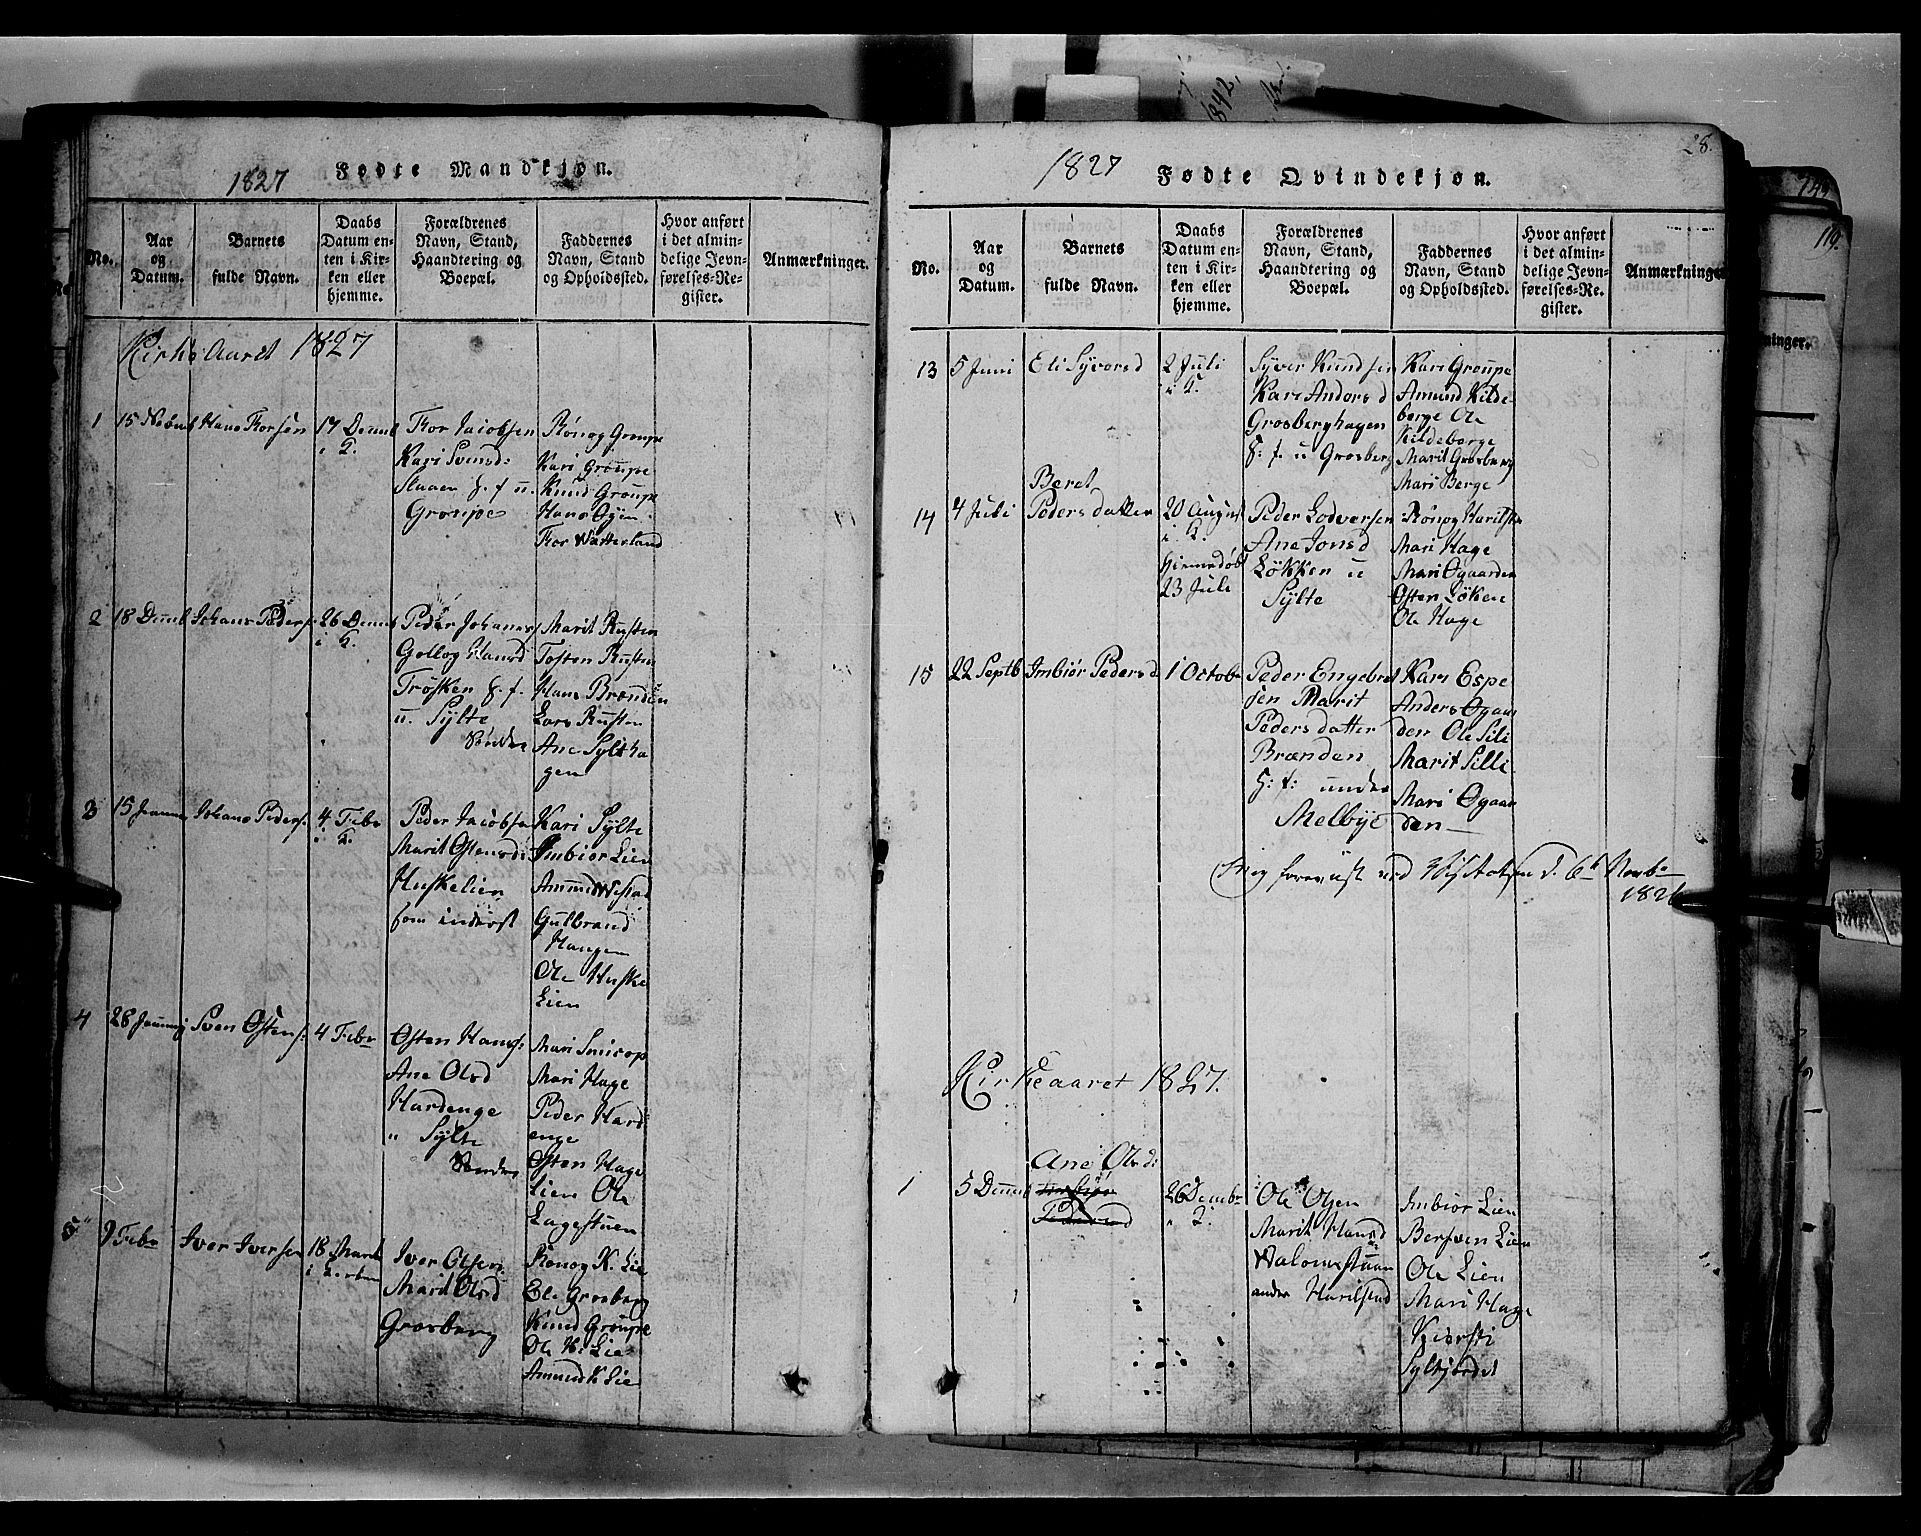 1842.
749
119.
28.
1827 Fødte Mandkjøn.
No.
Aar
og
Datum.
Barnets
fulde Navn.
Daabs
Datum en-
ten i Kir-
ken eller
hjemme.
Forældrenes
Navn, Stand,
Haandtering og
Boepæl.
Faddernes
Navn, Stand
og Opholdssted.
Hvor anført
i det almin-
delige Jevn-
førelses-Re-
gister.
Anmærkninger.
Kirke Aaret 1827
1
15 Novmb
Hans Torsen
17 Decmb
Tor Jacobsen
Kari Svensd:
Staaen g. f u.
Groupe
Rönog Groupe
Kari Groupe
Knud Groupe
Hans Öyen
Tor Watterland
2
18 Decmb
Johans Peders:
26 Decmb
i K.
Peder Johanes
Gollog Hansd
Trösken g. f.
u. Sylte
Söndre
Marit Rusten
Tosten Rusten
Hans Brænden
Lars Rusten
Ane Syltha
gen
3
15 Januar
Johans Peders.
4 Febr
i K.
Peder Jacobsen
Marit Östensd:
Huskelien
som inderst
Kari Sylte
Imbiör Lien
Amund
Gulbrand
Haugen
Ole Huske
Lien
4
28 Januarj
Sven Östens:
4 Febr
Östen Hans:
Ane Olsd
Hardenge
" Sylte
Söndre
Mari
Mari Hage
Peder Hard
enge
Östen Hage
Lien Ole
Lagestuen
5
9 Febr
Iver Iversen
18 Marti
i Kirken
Iver Olsen
Marit Olsd
Grosberg
Rönog K. Lie
Ole Grosberg
Knud Groupe
Ole K. Lie
Amund K Lie
1827 Fødte Qvindekjøn.
No.
Aar
og
Datum.
Barnets
fulde Navn.
Daabs
Datum en-
ten i Kir-
ken eller
hjemme.
Forældrenes
Navn, Stand,
Haandtering og
Boepæl.
Faddernes
Navn, Stand
og Opholdssted.
Hvor anført
i det almin-
delige Jevn-
førelses-Re-
gister.
Anmærkninger
13
5 Juni
Eli Syversd
2 Juli
i K.
Syver Knudsen
Kari Andersd
Grosberghagen
g: f. u Grosberg
Kari Groupe
Amund Kilde-
berge Ole
Kildeberge
Marit Grosberg
Mari Berge
14
4 Juli
Beret
Pedersdatter
20 August
i K.
hiemmedöbt
23 Juli
Peder Lodversen
Ane Jonsd
Løkken u
Sylte
Rönog Harilsta
Mari Hage
Mari Øgaarden
Østen Løken
Ole Hage
15
22 Septb
Imbiör Pedersd
1 October
Peder Engebret
sen Marit
Pedersdatter
Brænden
g: f: under
Melbye
Kari Espe
Anders Øgaar
den Ole Sili
Marit Silli
Mari Øgaar
den
Mig foreviist ved Visitatsen d. 6te Novbr
1826
Kirkeaaret 1827.
1
5 Decmb
Ane Olsd:
Imbiör
Pedersd
26 Decmbr
Ole Olsen
Marit Hansd
under Harilstad
Imbiör Lien
Berswen Lien
Ole Lien
Mari Hage
Kjersti
Syltjordet